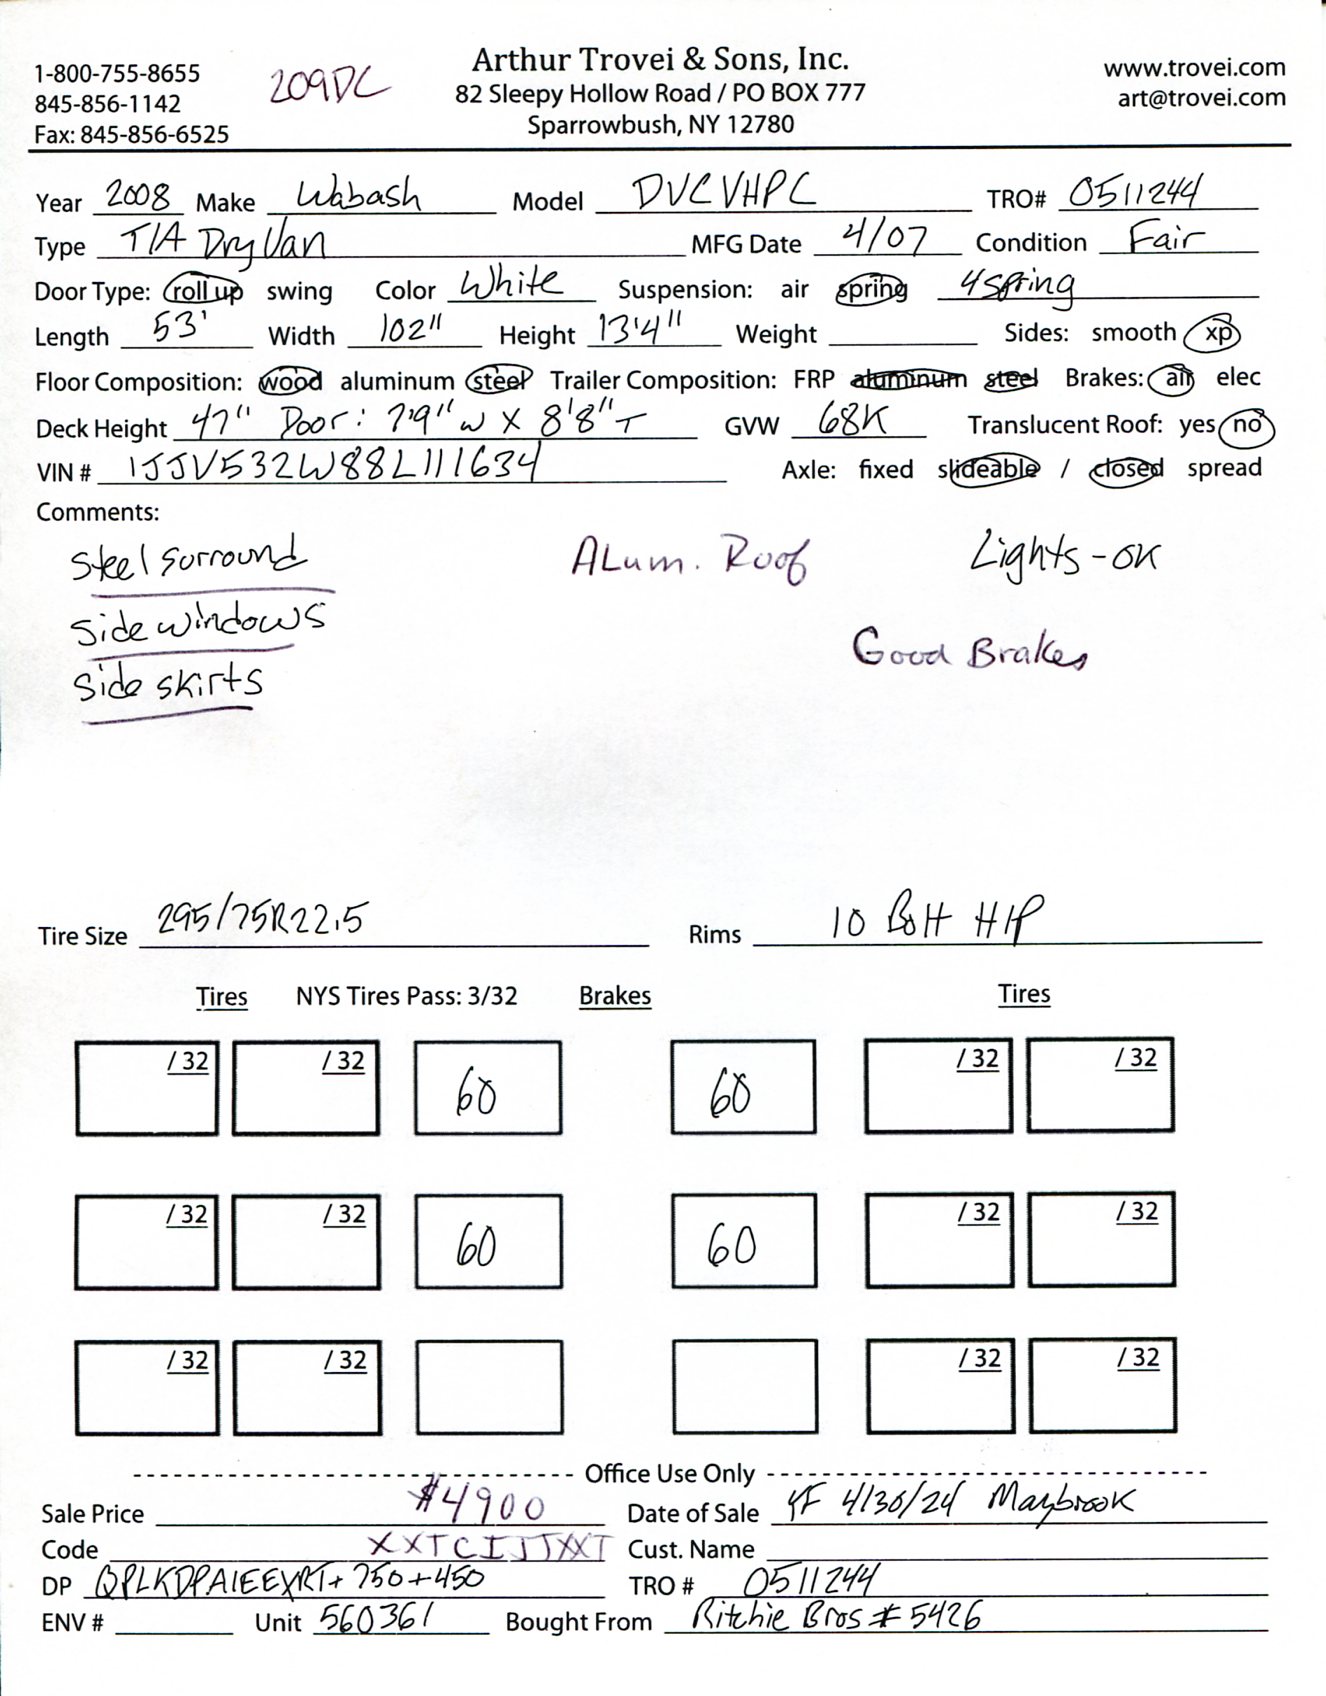 Arthur Trovei & Sons, Inc.
1-800-755-8655 209DC 82 Sleepy Hollow Road / PO BOX 777 www.trovei.com
845-856-1142 Sparrowbush, NY 12780 art@trovei.com
Fax: 845-856-6525
Year 2008 Make Wabash Model DVCVHPC TRO# 0511244
Type T/A Dry Van MFG Date 4/07 Condition Fair
Door Type: roll up swing Color White Suspension: air spring 4 spring
Length 53' Width 102" Height 13'4" Weight Sides: smooth xp
Floor Composition: wood aluminum steel Trailer Composition: FRP aluminum steel Brakes: air elec
Deck Height 47" Door: 7'9" w X 8'8" T GVW 68K Translucent Roof: yes no
VIN # 1JJV532W88L111634 Axle: fixed slideable / closed spread
Comments:
Steel surround Alum. Roof Lights - OK
Side windows Good Brakes
Side skirts
Tire Size 295/75R22.5 Rims 10 Bolt H/P
Tires NYS Tires Pass: 3/32 Brakes Tires
/ 32 / 32 60 60 / 32 / 32
/ 32 / 32 60 60 / 32 / 32
/ 32 / 32 / 32 / 32
Office Use Only
Sale Price $4900 Date of Sale YF 4/30/24 Maybrook
Code XXTCIJJXXT Cust. Name
DP QPLKDPAIEEXRT+ 750+450 TRO # 0511244
ENV # Unit 560361 Bought From Ritchie Bros # 5426